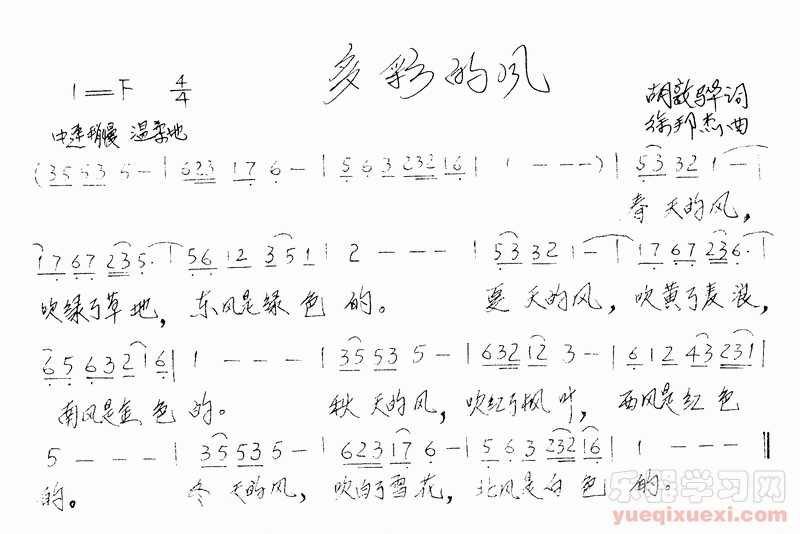 多彩的风
1=F 4/4
胡敦骅词
中速稍慢 温柔地
徐邦杰曲
(35 53 5 - | 623 17 6 - | 5 6 3 232 16 | 1 - - - ) | 53 32 1 - |
春天的风,
17 67 235· | 56 12 3 51 | 2 - - - | 53 32 1 - | 17 67 236· |
吹绿了草地, 东风是绿色的。 夏天的风, 吹黄了麦浪,
65 63 2 16 | 1 - - - | 35 53 5 - | 632 12 3 - | 6 12 43 231 |
南风是金色的。 秋天的风, 吹红了枫叶, 西风是红色
5 - - - | 35 53 5 - | 623 17 6 - | 5 6 3 232 16 | 1 - - - ‖
的。 冬天的风, 吹白了雪花, 北风是白色的。
乐器学习网
yueqixuexi.com